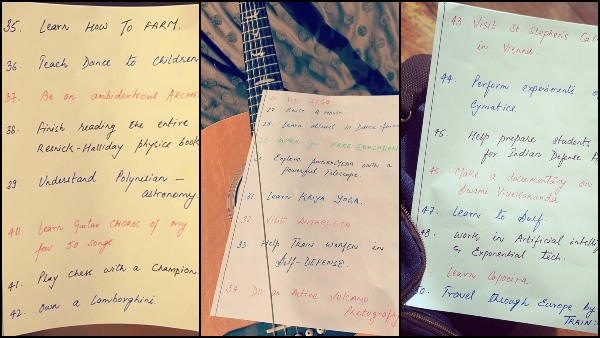 35. Learn HOW TO FARM.
36. Teach Dance to Children
37. Be an ambidextrous Arche
38. Finish reading the entire
Resnick-Halliday physics book
39. Understand Polynesian -
astronomy.
40. Learn Guitar CHORDS of any
few 50 songs
41. Play chess with a Champion.
42. Own a Lamborghini.
VISIT
27
Learn Dance form
WORK for FREE EDUCATION
Explore ANDROMEDA with a
powerful Telescope.
31. Learn KRIYA YOGA.
32. VISIT
33. Help Train women in
Self-DEFENSE.
34. Do an Active VOLCANO
Photography
43. Visit St Stephen's Cat
in Vienna.
44. Perform experiments o
Cymatics.
45. Help prepare students
for Indian Defense A
46. Make a documentary on
Swami Vivekananda
47. Learn to Surf.
48. Work in Artificial intelli
& Exponential tech.
Learn Capoeira
50. Travel through Europe by
TRAIN.